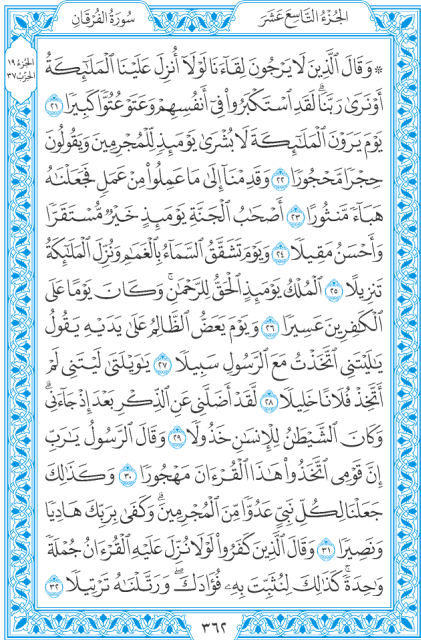 الجُزْءُ التَّاسِعَ عَشَرَ
سُورَةُ الفُرْقَانِ
الجزء ١٩
الحزب ٣٧
۞ وَقَالَ ٱلَّذِينَ لَا يَرْجُونَ لِقَآءَنَا لَوْلَآ أُنزِلَ عَلَيْنَا ٱلْمَلَٰٓئِكَةُ
أَوْ نَرَىٰ رَبَّنَا ۗ لَقَدِ ٱسْتَكْبَرُوا۟ فِىٓ أَنفُسِهِمْ وَعَتَوْ عُتُوًّا كَبِيرًا ٢١
يَوْمَ يَرَوْنَ ٱلْمَلَٰٓئِكَةَ لَا بُشْرَىٰ يَوْمَئِذٍ لِّلْمُجْرِمِينَ وَيَقُولُونَ
حِجْرًا مَّحْجُورًا ٢٢ وَقَدِمْنَآ إِلَىٰ مَا عَمِلُوا۟ مِنْ عَمَلٍ فَجَعَلْنَٰهُ
هَبَآءً مَّنثُورًا ٢٣ أَصْحَٰبُ ٱلْجَنَّةِ يَوْمَئِذٍ خَيْرٌ مُّسْتَقَرًّا
وَأَحْسَنُ مَقِيلًا ٢٤ وَيَوْمَ تَشَقَّقُ ٱلسَّمَآءُ بِٱلْغَمَٰمِ وَنُزِّلَ ٱلْمَلَٰٓئِكَةُ
تَنزِيلًا ٢٥ ٱلْمُلْكُ يَوْمَئِذٍ ٱلْحَقُّ لِلرَّحْمَٰنِ ۚ وَكَانَ يَوْمًا عَلَى
ٱلْكَٰفِرِينَ عَسِيرًا ٢٦ وَيَوْمَ يَعَضُّ ٱلظَّالِمُ عَلَىٰ يَدَيْهِ يَقُولُ
يَٰلَيْتَنِى ٱتَّخَذْتُ مَعَ ٱلرَّسُولِ سَبِيلًا ٢٧ يَٰوَيْلَتَىٰ لَيْتَنِى لَمْ
أَتَّخِذْ فُلَانًا خَلِيلًا ٢٨ لَّقَدْ أَضَلَّنِى عَنِ ٱلذِّكْرِ بَعْدَ إِذْ جَآءَنِى ۗ
وَكَانَ ٱلشَّيْطَٰنُ لِلْإِنسَٰنِ خَذُولًا ٢٩ وَقَالَ ٱلرَّسُولُ يَٰرَبِّ
إِنَّ قَوْمِى ٱتَّخَذُوا۟ هَٰذَا ٱلْقُرْءَانَ مَهْجُورًا ٣٠ وَكَذَٰلِكَ
جَعَلْنَا لِكُلِّ نَبِىٍّ عَدُوًّا مِّنَ ٱلْمُجْرِمِينَ ۗ وَكَفَىٰ بِرَبِّكَ هَادِيًا
وَنَصِيرًا ٣١ وَقَالَ ٱلَّذِينَ كَفَرُوا۟ لَوْلَا نُزِّلَ عَلَيْهِ ٱلْقُرْءَانُ جُمْلَةً
وَٰحِدَةً ۚ كَذَٰلِكَ لِنُثَبِّتَ بِهِۦ فُؤَادَكَ ۖ وَرَتَّلْنَٰهُ تَرْتِيلًا ٣٢
٣٦٢